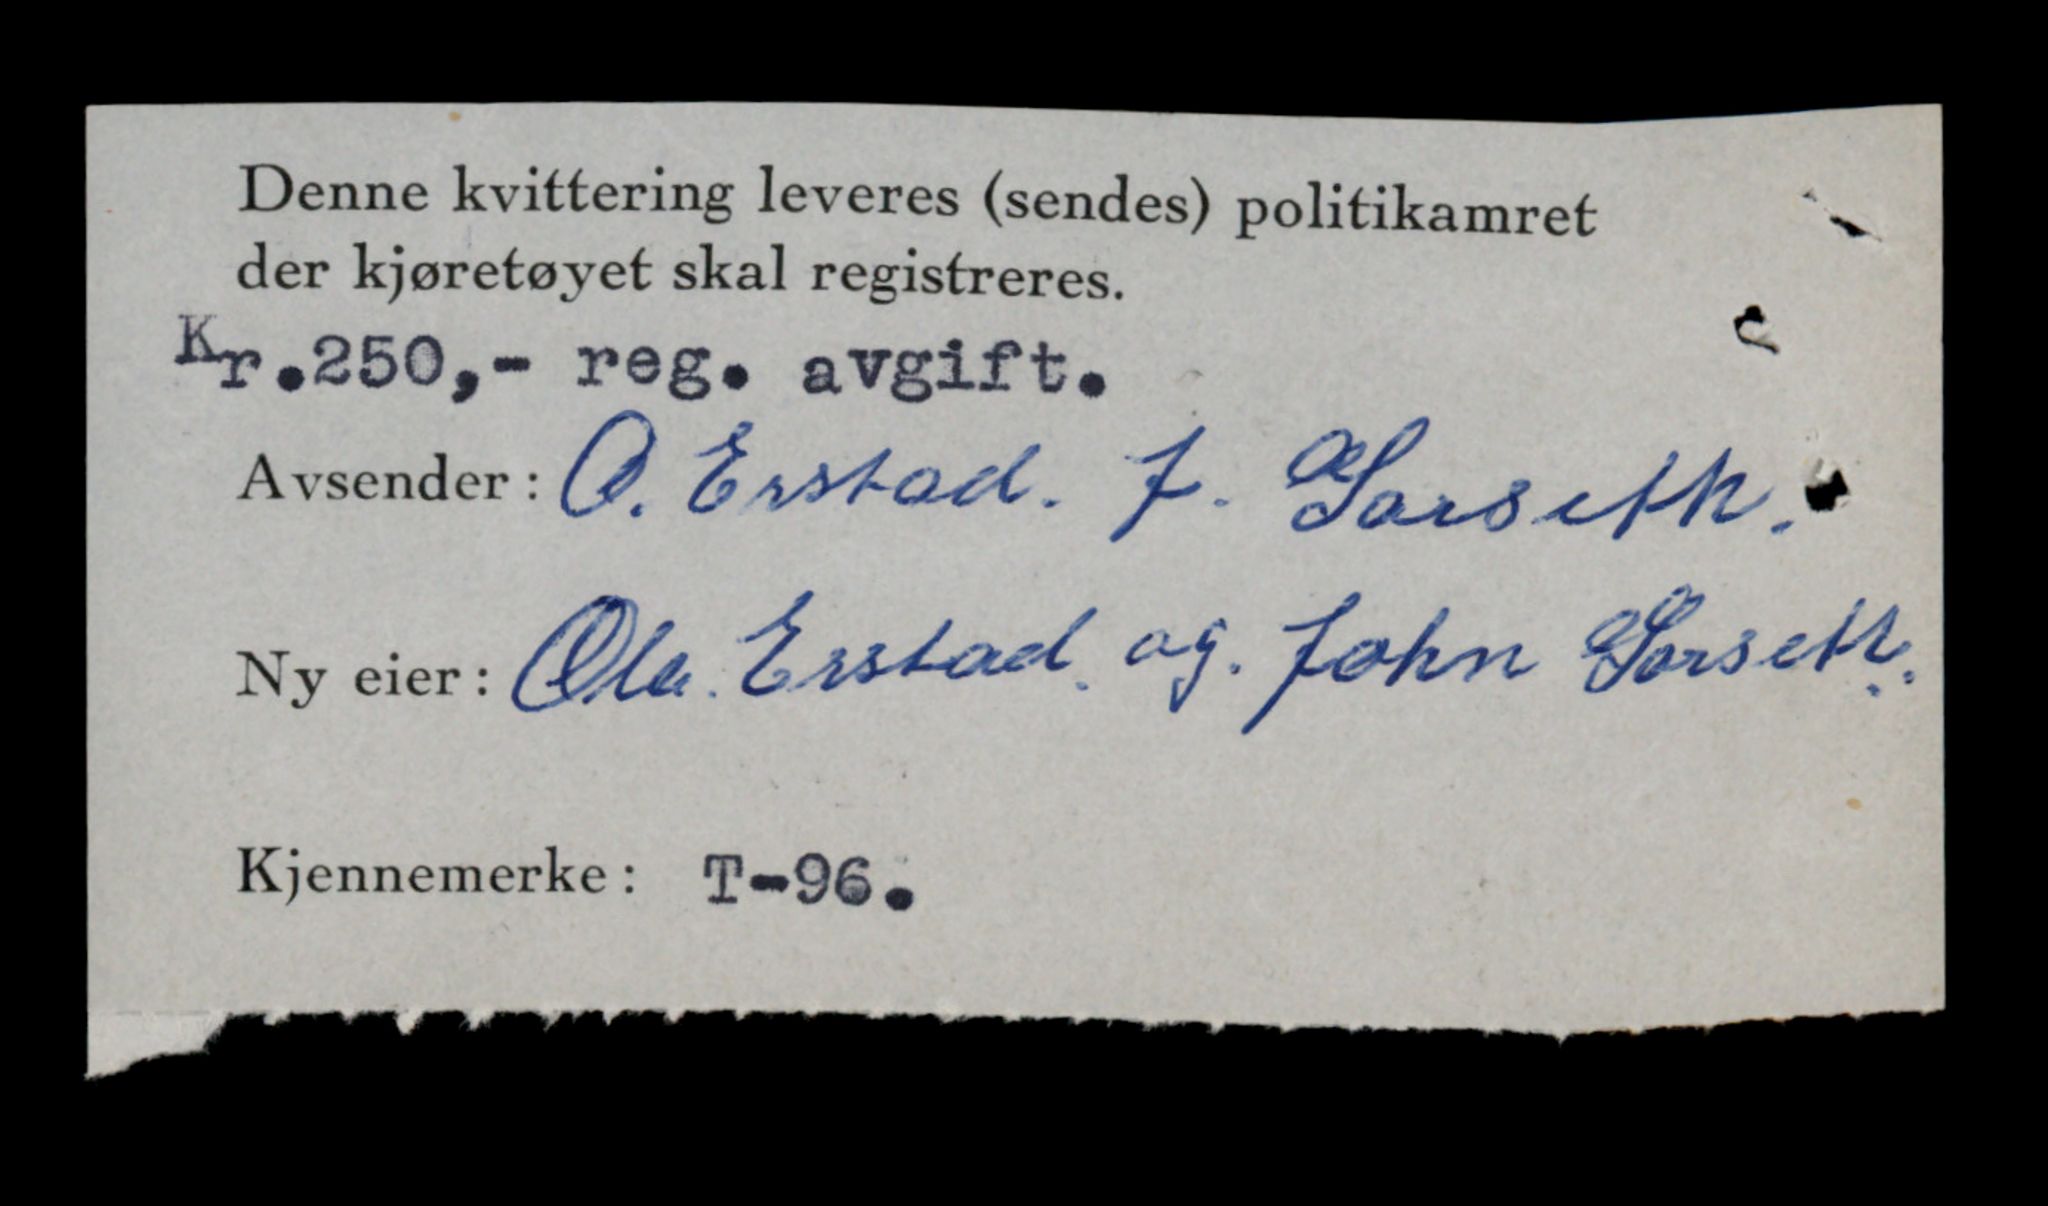 Denne kvittering leveres (sendes) politikamret
der kjøretøyet skal registreres.
Kr.250,- reg. avgift.
Avsender: O. Erstad. J. Garseth.
Ny eier: Ola. Erstad. og. John Garseth.
Kjennemerke: T-96.